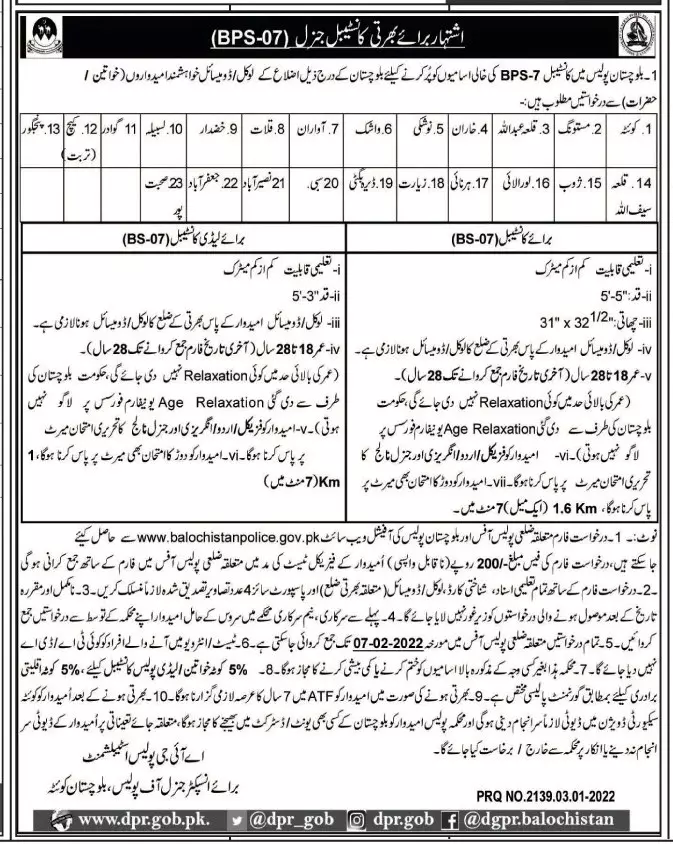 اشتہار برائے بھرتی کانسٹیبل جنرل (BPS-07)
1۔ بلوچستان پولیس میں کانسٹیبل BPS-7 کی خالی اسامیوں کو پُر کرنے کیلئے بلوچستان کے درج ذیل اضلاع کے لوکل/ڈومیسائل خواہشمند امیدواروں (خواتین /
حضرات) سے درخواستیں مطلوب ہیں:-
1. کوئٹہ 2. مستونگ 3. قلعہ عبداللہ 4. خاران 5. نوشکی 6. واشک 7. آواران 8. قلات 9. خضدار 10. لسبیلہ 11 گوادر 12. کیچ (تربت) 13. پنجگور
14. قلعہ سیف اللہ 15. ژوب 16. لورالائی 17. ہرنائی 18. زیارت 19. ڈیرہ بگٹی 20. سبی 21 نصیرآباد 22. جعفرآباد 23. صحبت پور
برائے کانسٹیبل (BS-07)
i- تعلیمی قابلیت کم از کم میٹرک
ii- قد: "5-'5
iii- چھاتی: "31" x 32 1/2
iv- لوکل/ڈومیسائل امیدوار کے پاس بھرتی کے ضلع کا لوکل/ڈومیسائل ہونا لازمی ہے۔
v- عمر 18 تا 28 سال (آخری تاریخ فارم جمع کروانے تک 28 سال)۔
(عمر کی بالائی حد میں کوئی Relaxation نہیں دی جائے گی، حکومت
بلوچستان کی طرف سے دی گئی Age Relaxation یونیفارم فورسس پر
لاگو نہیں ہوتی)۔ vi- امیدوار کو فزیکل/اردو/انگریزی اور جنرل نالج کا
تحریری امتحان میرٹ پر پاس کرنا ہوگا۔ vii۔ امیدوار کو دوڑ کا امتحان بھی میرٹ پر
پاس کرنا ہوگا، 1.6 Km (ایک میل) 7 منٹ میں۔
برائے لیڈی کانسٹیبل (BS-07)
i- تعلیمی قابلیت کم از کم میٹرک
ii- قد "3-'5
iii- لوکل/ڈومیسائل امیدوار کے پاس بھرتی کے ضلع کا لوکل/ڈومیسائل ہونا لازمی ہے۔
iv- عمر 18 تا 28 سال (آخری تاریخ فارم جمع کروانے تک 28 سال)۔
(عمر کی بالائی حد میں کوئی Relaxation نہیں دی جائے گی، حکومت بلوچستان کی
طرف سے دی گئی Age Relaxation یونیفارم فورسس پر لاگو نہیں
ہوتی)۔ v- امیدوار کو فزیکل/اردو/انگریزی اور جنرل نالج کا تحریری امتحان میرٹ
پر پاس کرنا ہوگا۔ vi۔ امیدوار کو دوڑ کا امتحان بھی میرٹ پر پاس کرنا ہوگا، 1
Km (7 منٹ میں)
نوٹ:۔ 1۔ درخواست فارم متعلقہ ضلعی پولیس آفس اور بلوچستان پولیس کی آفیشل ویب سائٹ www.balochistanpolice.gov.pk سے حاصل کیئے
جا سکتے ہیں، درخواست فارم کی فیس مبلغ -/200 روپے (نا قابل واپسی) اُمیدوار کے فزیکل ٹیسٹ کی مد میں متعلقہ ضلعی پولیس آفس میں فارم کے ساتھ جمع کرانی ہوگی
2۔ درخواست فارم کے ساتھ تمام تعلیمی اسناد، شناختی کارڈ، لوکل/ڈومیسائل (متعلقہ بھرتی ضلع) اور پاسپورٹ سائز 4 عدد تصاویر تصدیق شدہ لازماً منسلک کریں۔ 3۔ نامکمل اور مقررہ
تاریخ کے بعد موصول ہونے والی درخواستوں کو زیر غور نہیں لایا جائے گا۔ 4۔ پہلے سے سرکاری، نیم سرکاری محکمے میں سروس کے حامل امیدوار اپنے محکمہ کے توسط سے درخواستیں جمع
کروائیں۔ 5۔ تمام درخواستیں متعلقہ ضلعی پولیس آفس میں مورخہ 07-02-2022 تک جمع کروائی جاسکتی ہے۔ 6۔ ٹیسٹ/انٹرویو میں آنے والے افراد کو کوئی ٹی اے/ڈی اے
نہیں دیا جائے گا۔ 7۔ محکمہ ہذا بغیر کسی وجہ کے مذکورہ بالا اسامیوں کو ختم کرنے یا کمی بیشی کرنے کا مجاز ہوگا۔ 8۔ 5% کوٹہ خواتین/لیڈی پولیس کانسٹیبل کیلئے، 5% کوٹہ اقلیتی
برادری کیلئے بمطابق گورنمنٹ پالیسی مختص ہے۔ 9۔ بھرتی ہونے کی صورت میں امیدوار کو ATF میں 7 سال کا عرصہ لازمی گزارنا ہوگا۔ 10۔ بھرتی ہونے کے بعد امیدوار کو کوئٹہ
سیکورٹی ڈویژن میں ڈیوٹی لازماً سرانجام دینی ہوگی اور محکمہ پولیس امیدوار کو بلوچستان کے کسی بھی یونٹ/ڈسٹرکٹ میں بھیجنے کا مجاز ہوگا، متعلقہ جائے تعیناتی پر اُمیدوار کے ڈیوٹی سر
انجام نہ دینے یا انکار پر محکمہ سے خارج / برخاست کیا جائے گا۔
اے آئی جی پولیس اسٹیبلشمنٹ
برائے انسپکٹر جنرل آف پولیس، بلوچستان کوئٹہ
PRQ NO.2139.03.01-2022
www.dpr.gob.pk. @dpr_gob @dpr.gob @dgpr.balochistan